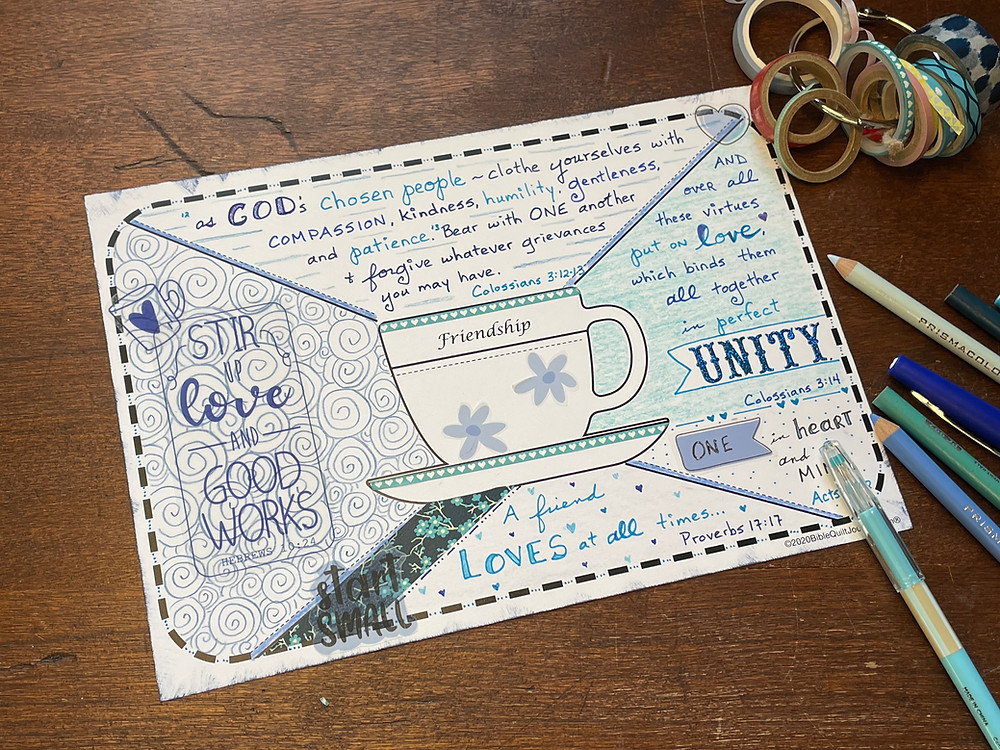 12 as GOD's chosen people ~ clothe yourselves with
COMPASSION, kindness, humility, gentleness,
and patience. 13 Bear with ONE another
& forgive whatever grievances
you may have.
Colossians 3:12-13
AND
over all
these virtues
put on love,
which binds them
all together
in perfect
UNITY
Colossians 3:14
STIR
UP
love
AND
GOOD
WORKS
HEBREWS 10:24
Friendship
ONE in heart
and
Acts
A friend
LOVES at all times...
Proverbs 17:17
start
SMALL
PRISMACOLO
PRISM
MADE IN CHINA